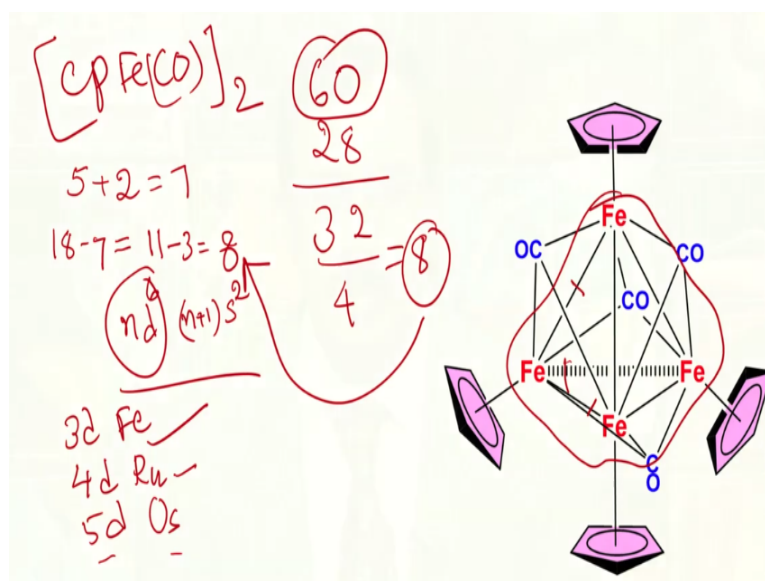 [CpFe(CO)]2
60
28
5+2=7
18-7=11-3=8
32
4
=8
nd6 (n+1)s2
3d Fe
4d Ru
5d Os
Fe
OC
CO
CO
Fe
Fe
Fe
C
O